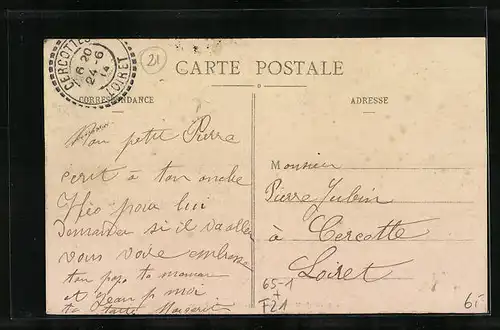 CERCOTTES
6 20
24-6
14
LOIRET
21
CARTE POSTALE
CORRESPONDANCE
ADRESSE
Mon petit Pierre
écrit à ton oncle
pour lui
demander si il va aller
vous voire embrasse
ton papa ta maman
et Jean p moi
ta tante
Monsieur
Pierre
à Cercotte
Loiret
65-1
+
F21
6.-